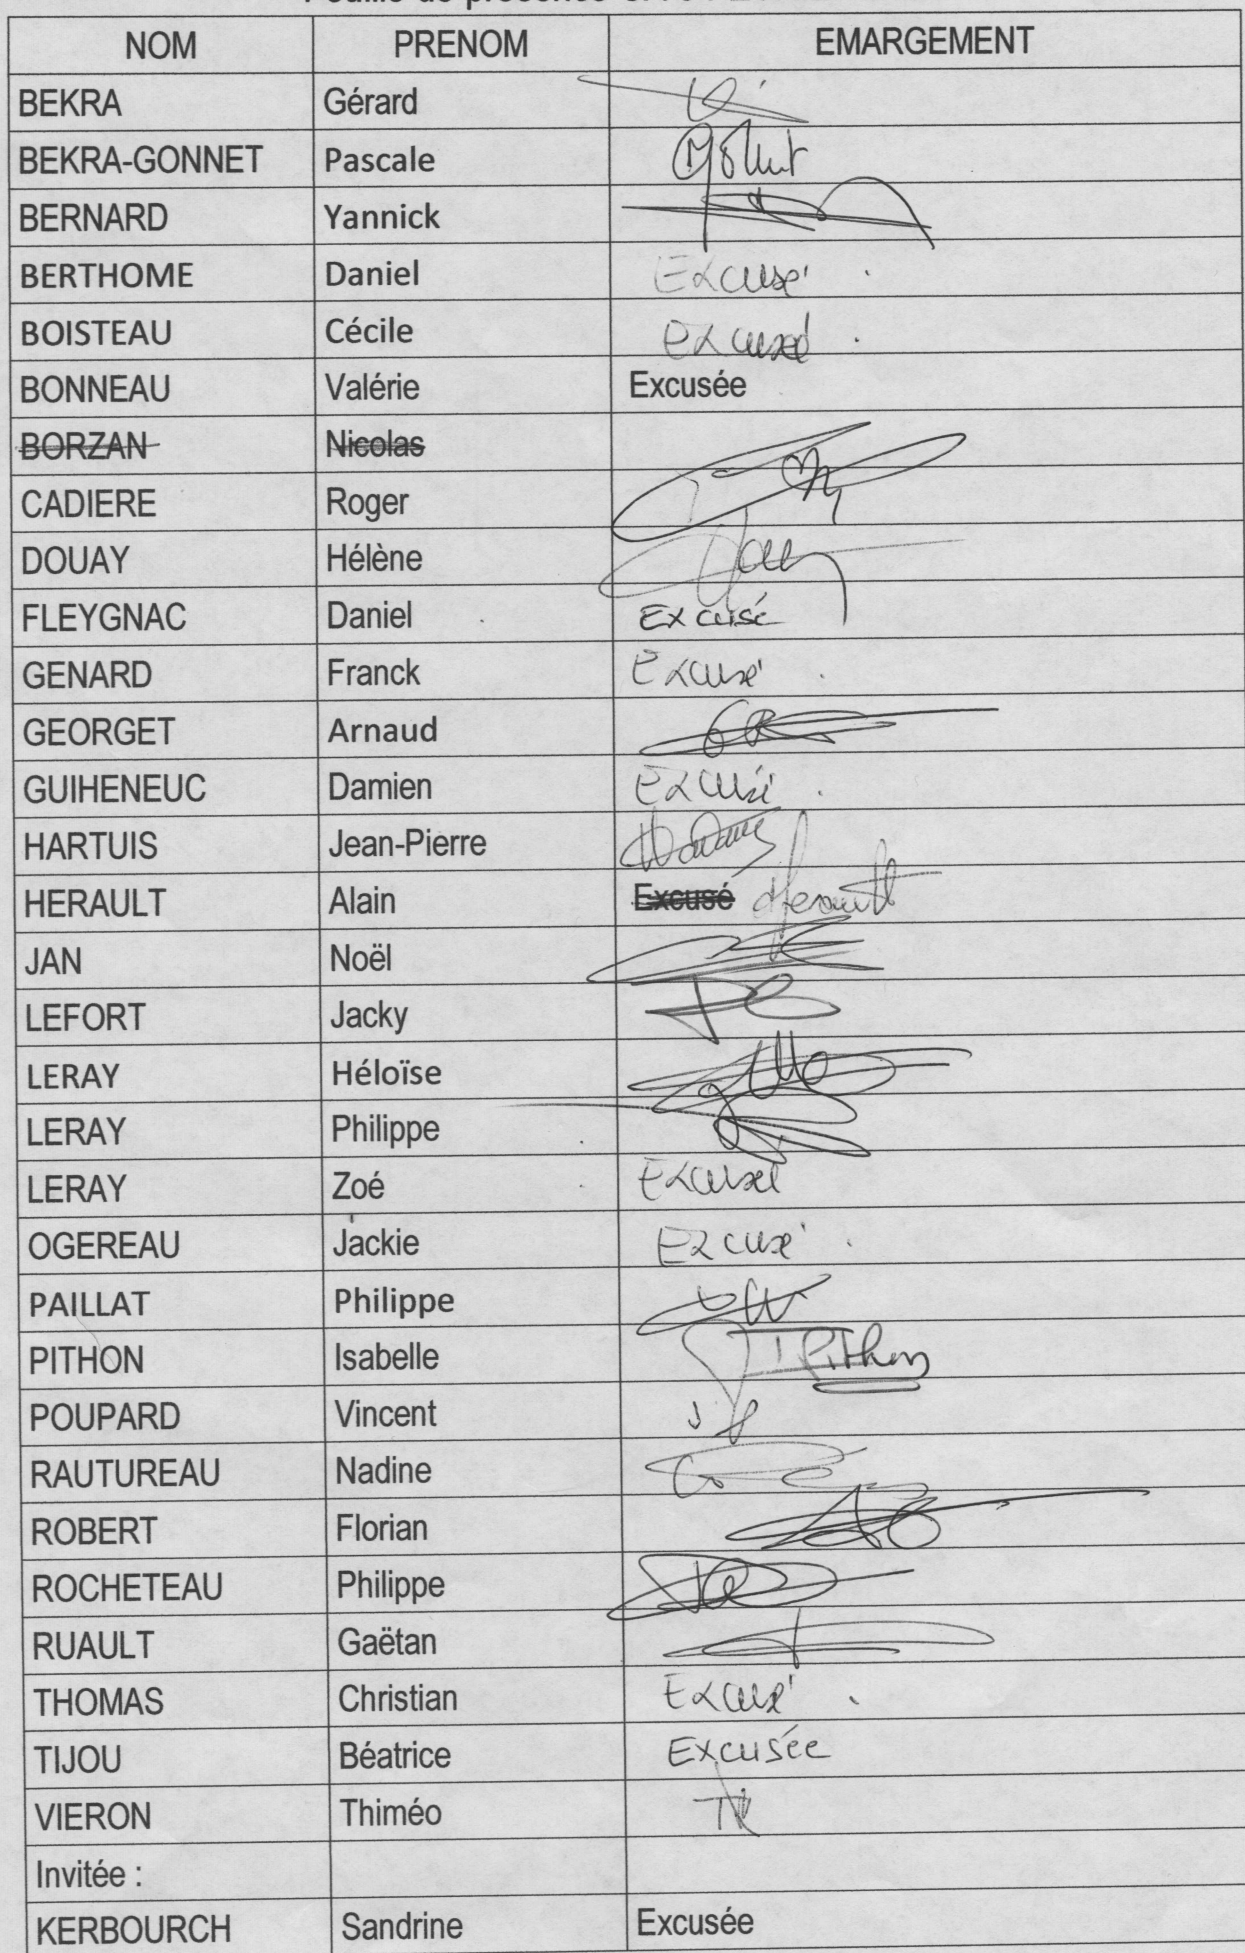 Feuille de présence
NOM PRENOM EMARGEMENT
BEKRA Gérard
BEKRA-GONNET Pascale
BERNARD Yannick
BERTHOME Daniel Excusé
BOISTEAU Cécile excusée
BONNEAU Valérie Excusée
BORZAN Nicolas
CADIERE Roger
DOUAY Hélène
FLEYGNAC Daniel Excusé
GENARD Franck Excusé
GEORGET Arnaud
GUIHENEUC Damien Excusé
HARTUIS Jean-Pierre
HERAULT Alain Excusé Herault
JAN Noël
LEFORT Jacky
LERAY Héloïse
LERAY Philippe
LERAY Zoé Excusée
OGEREAU Jackie Excusé
PAILLAT Philippe
PITHON Isabelle I Pithon
POUPARD Vincent
RAUTUREAU Nadine
ROBERT Florian
ROCHETEAU Philippe
RUAULT Gaëtan
THOMAS Christian Excusé
TIJOU Béatrice Excusée
VIERON Thiméo
Invitée :
KERBOURCH Sandrine Excusée